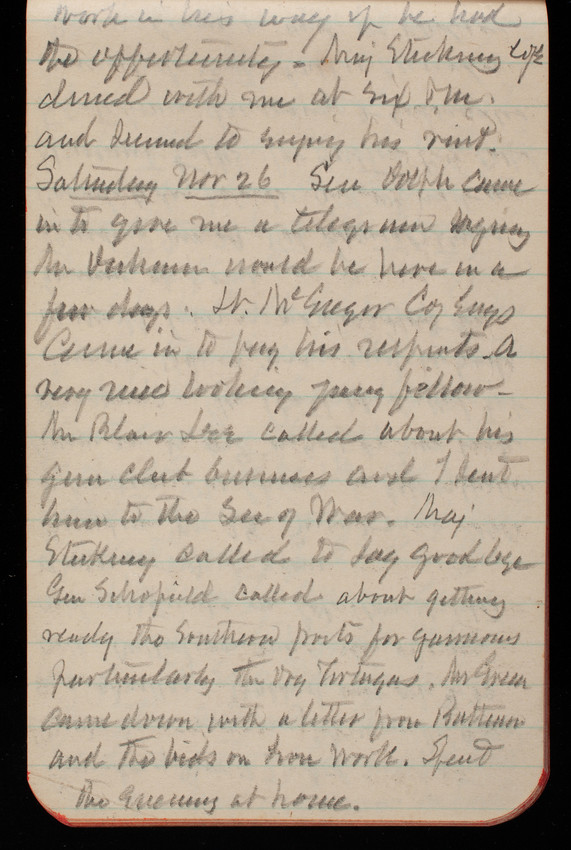 work in his way if he had
the opportunity. Maj Stickney USE
dined with me at six P.M.
and seemed to enjoy his visit.
Saturday Nov 26 Sen Dolph came
in to give me a telegram saying
Mr would be here in a
few days. Lt. McGregor Co Engs
Came in to pay his respects. A
very nice looking young fellow -
Mr Blair Lee called about his
gun club business and I sent
him to the Sec of War. Maj
Stickney called to say good bye
Gen Schofield called about getting
ready the Southern ports for garrisons
particularly the Dry Tortugas. Mr Green
came down with a letter from
and the bids on Iron Work. Spent
the evening at home.